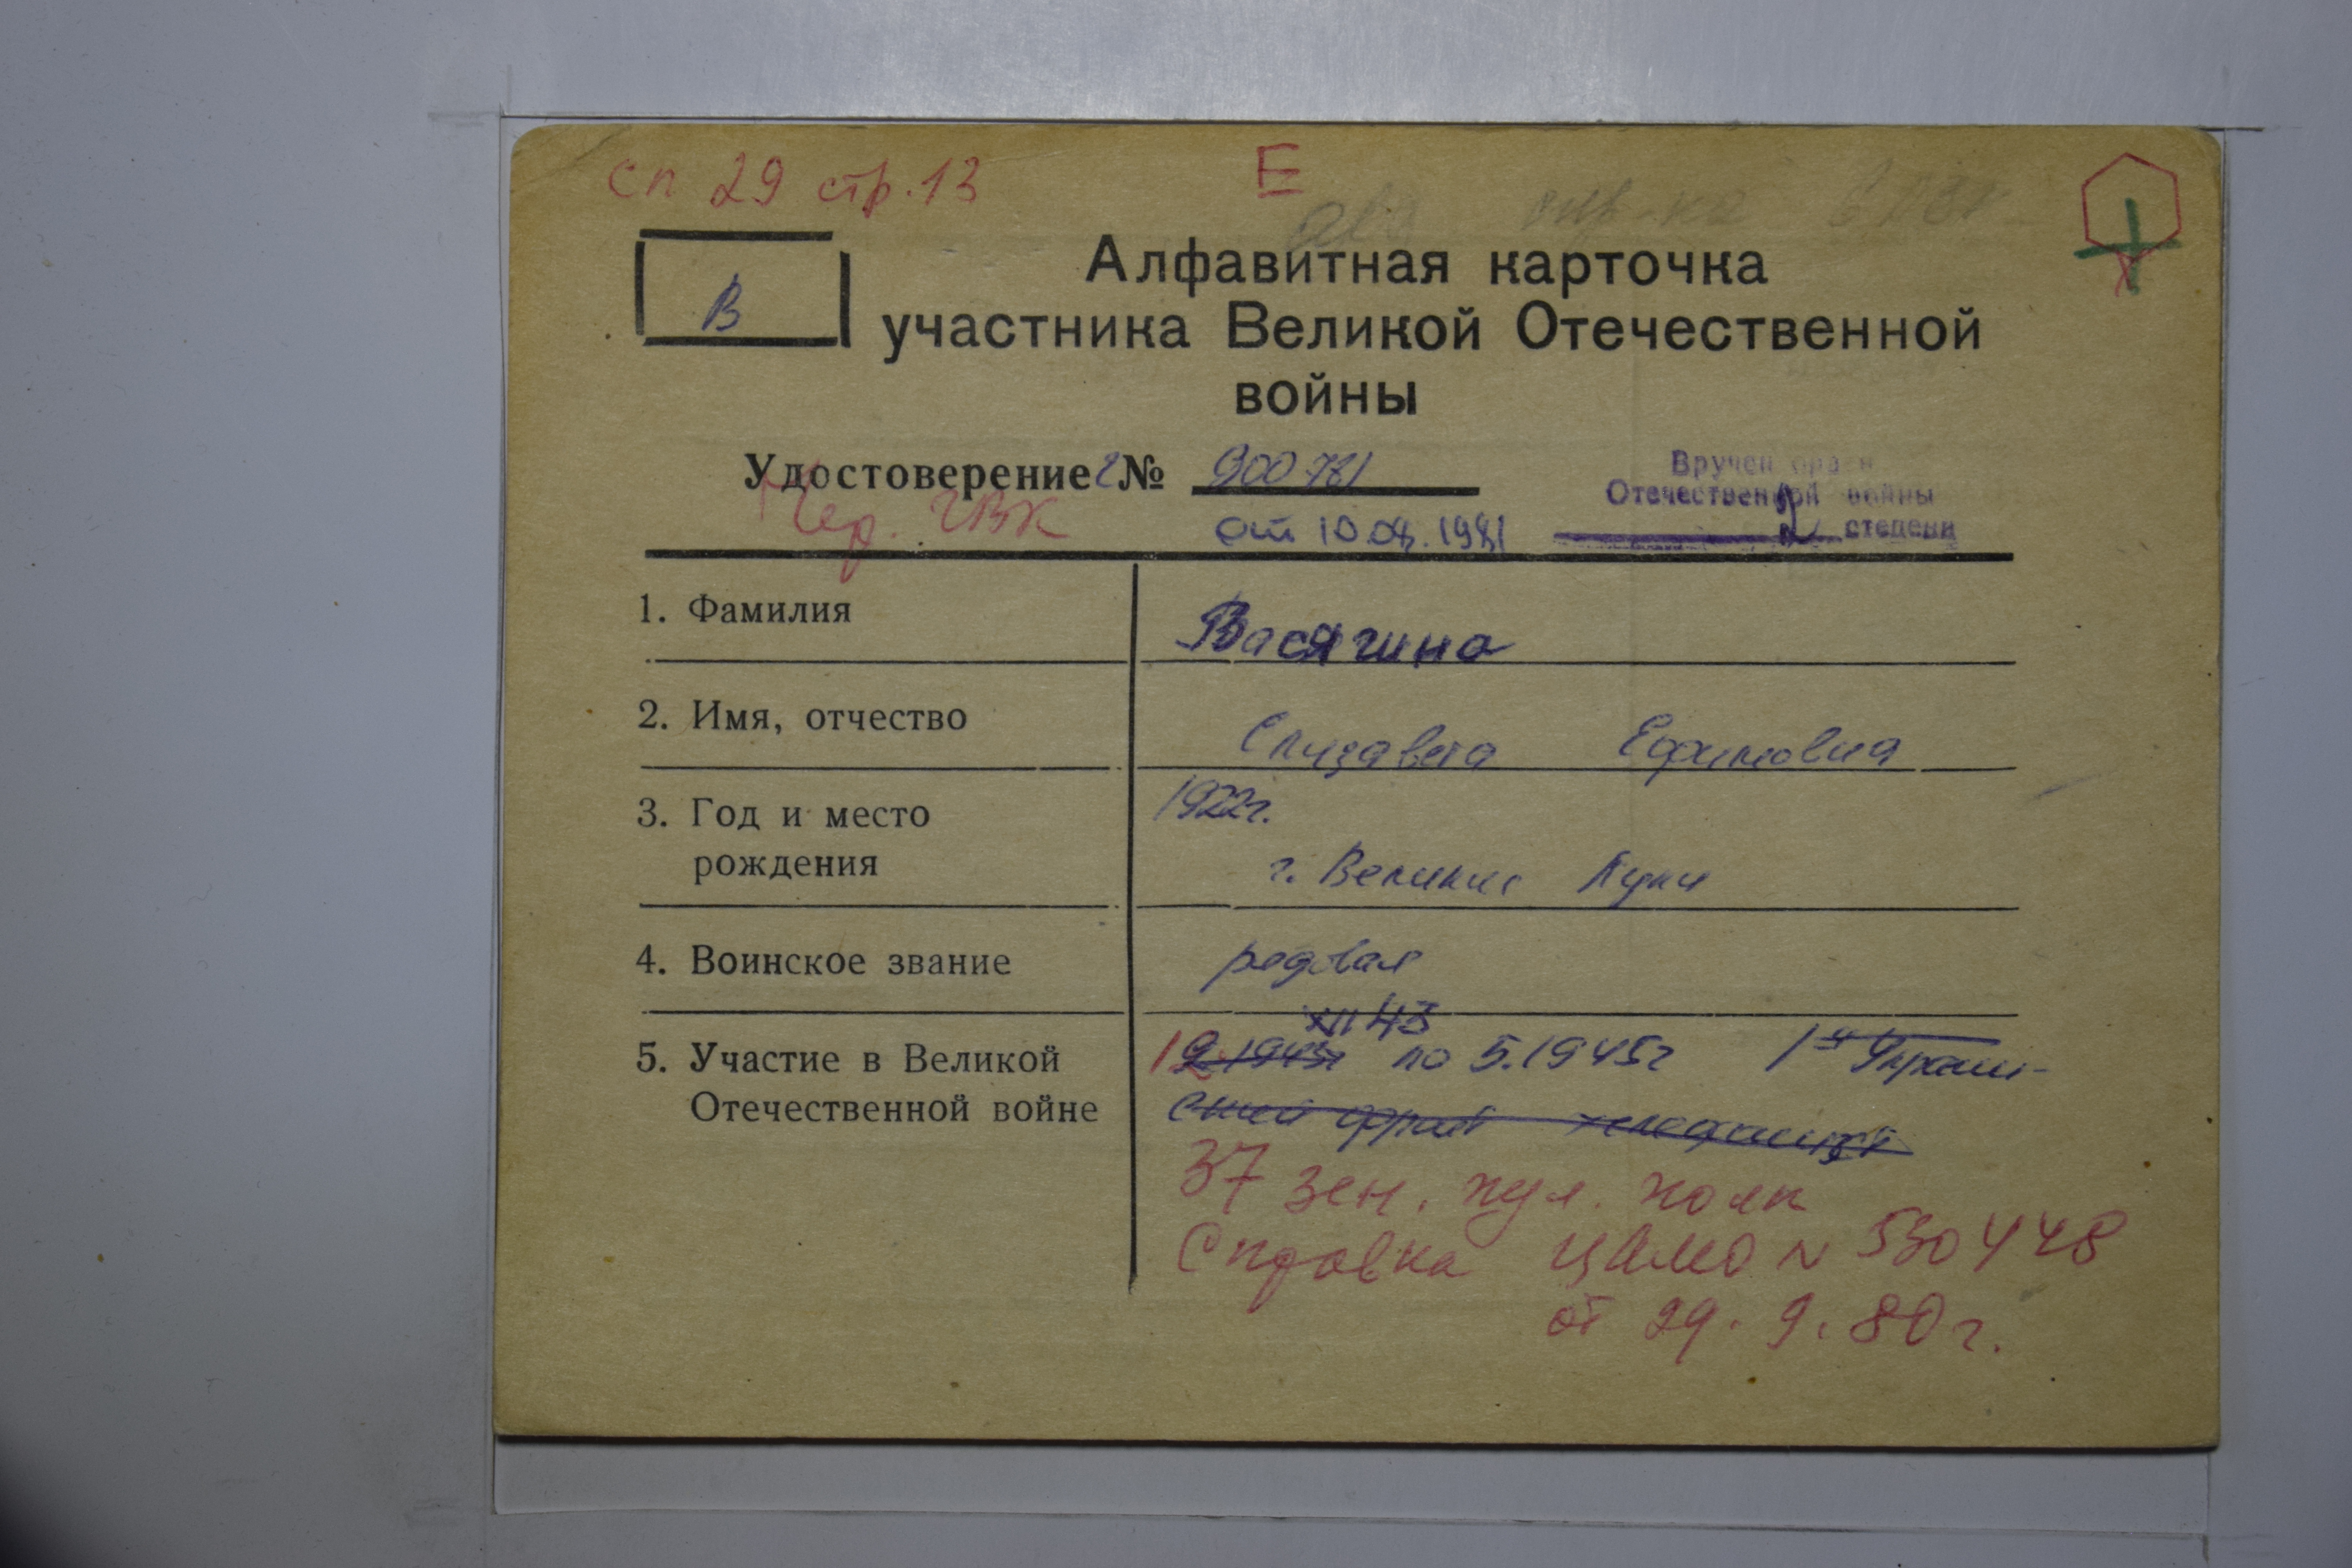 сп 29 стр. 13
Е
В
Алфавитная карточка
участника Великой Отечественной
войны
Удостоверение 2 № 900781
Чер. ГВК
от 10.04.1981
Вручен орден
Отечественной войны
2 степени
1. Фамилия
Васягина
2. Имя, отчество
Елизавета Ефимовна
3. Год и место
рождения
1922г.
г. Великие Луки
4. Воинское звание
рядовая
XII 43
5. Участие в Великой
Отечественной войне
12 9.1943г по 5.1945г 1й Украин-
ский фронт
37 зен. пул. полк
Справка ЦАМО N 530448
от 29.9.80г.